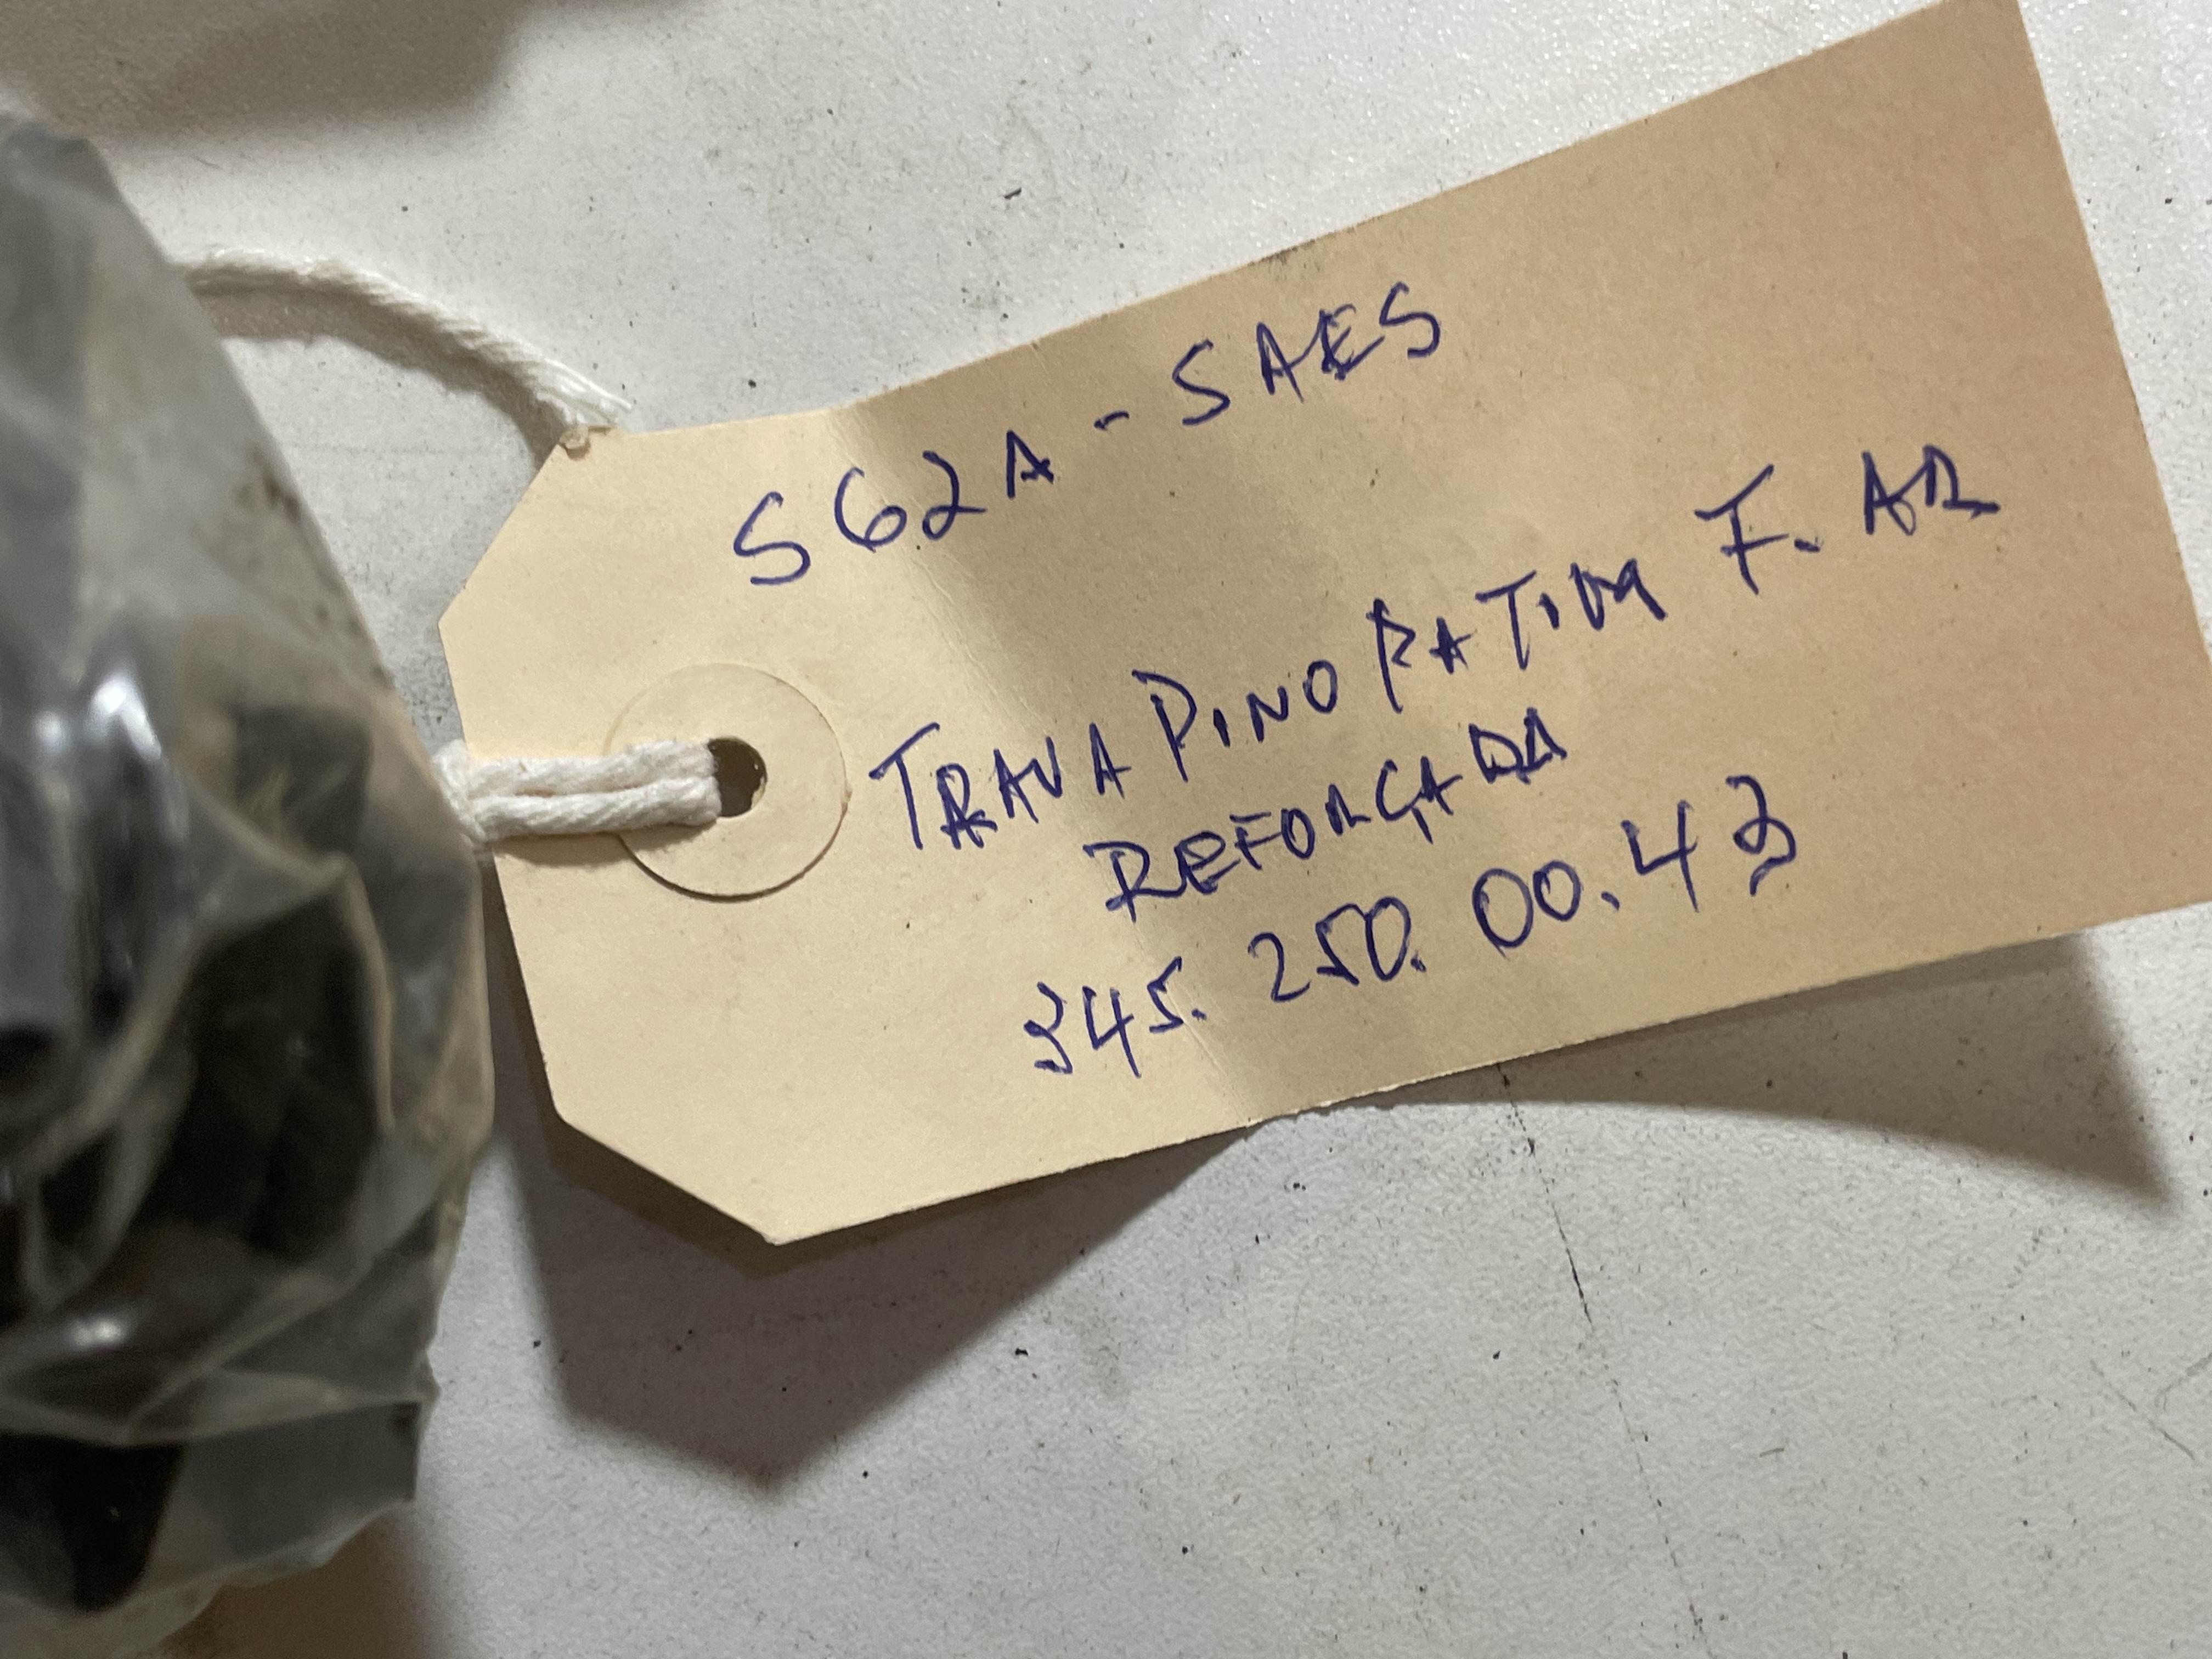 S62A - SAES
TRAVA PINO PATIM F. AR
REFORÇADA
345. 250. 00. 43